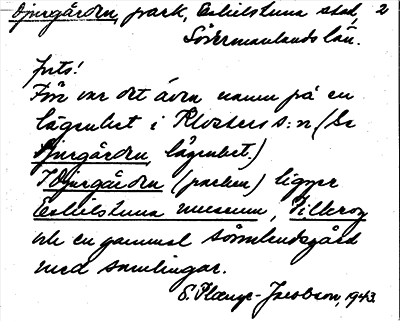 Djurgården, park, Eskilstuna stad, 2
Södermanlands län.
forts!
Förr var det även namn på en
lägenhet i Klosters s:n (Se
Djurgården, lägenhet.)
I Djurgården (parken) ligger
Eskilstuna museum, Tilleroy
och en gammal sörmlandsgård
med samlingar.
S. Plænge-Jacobson, 1943.